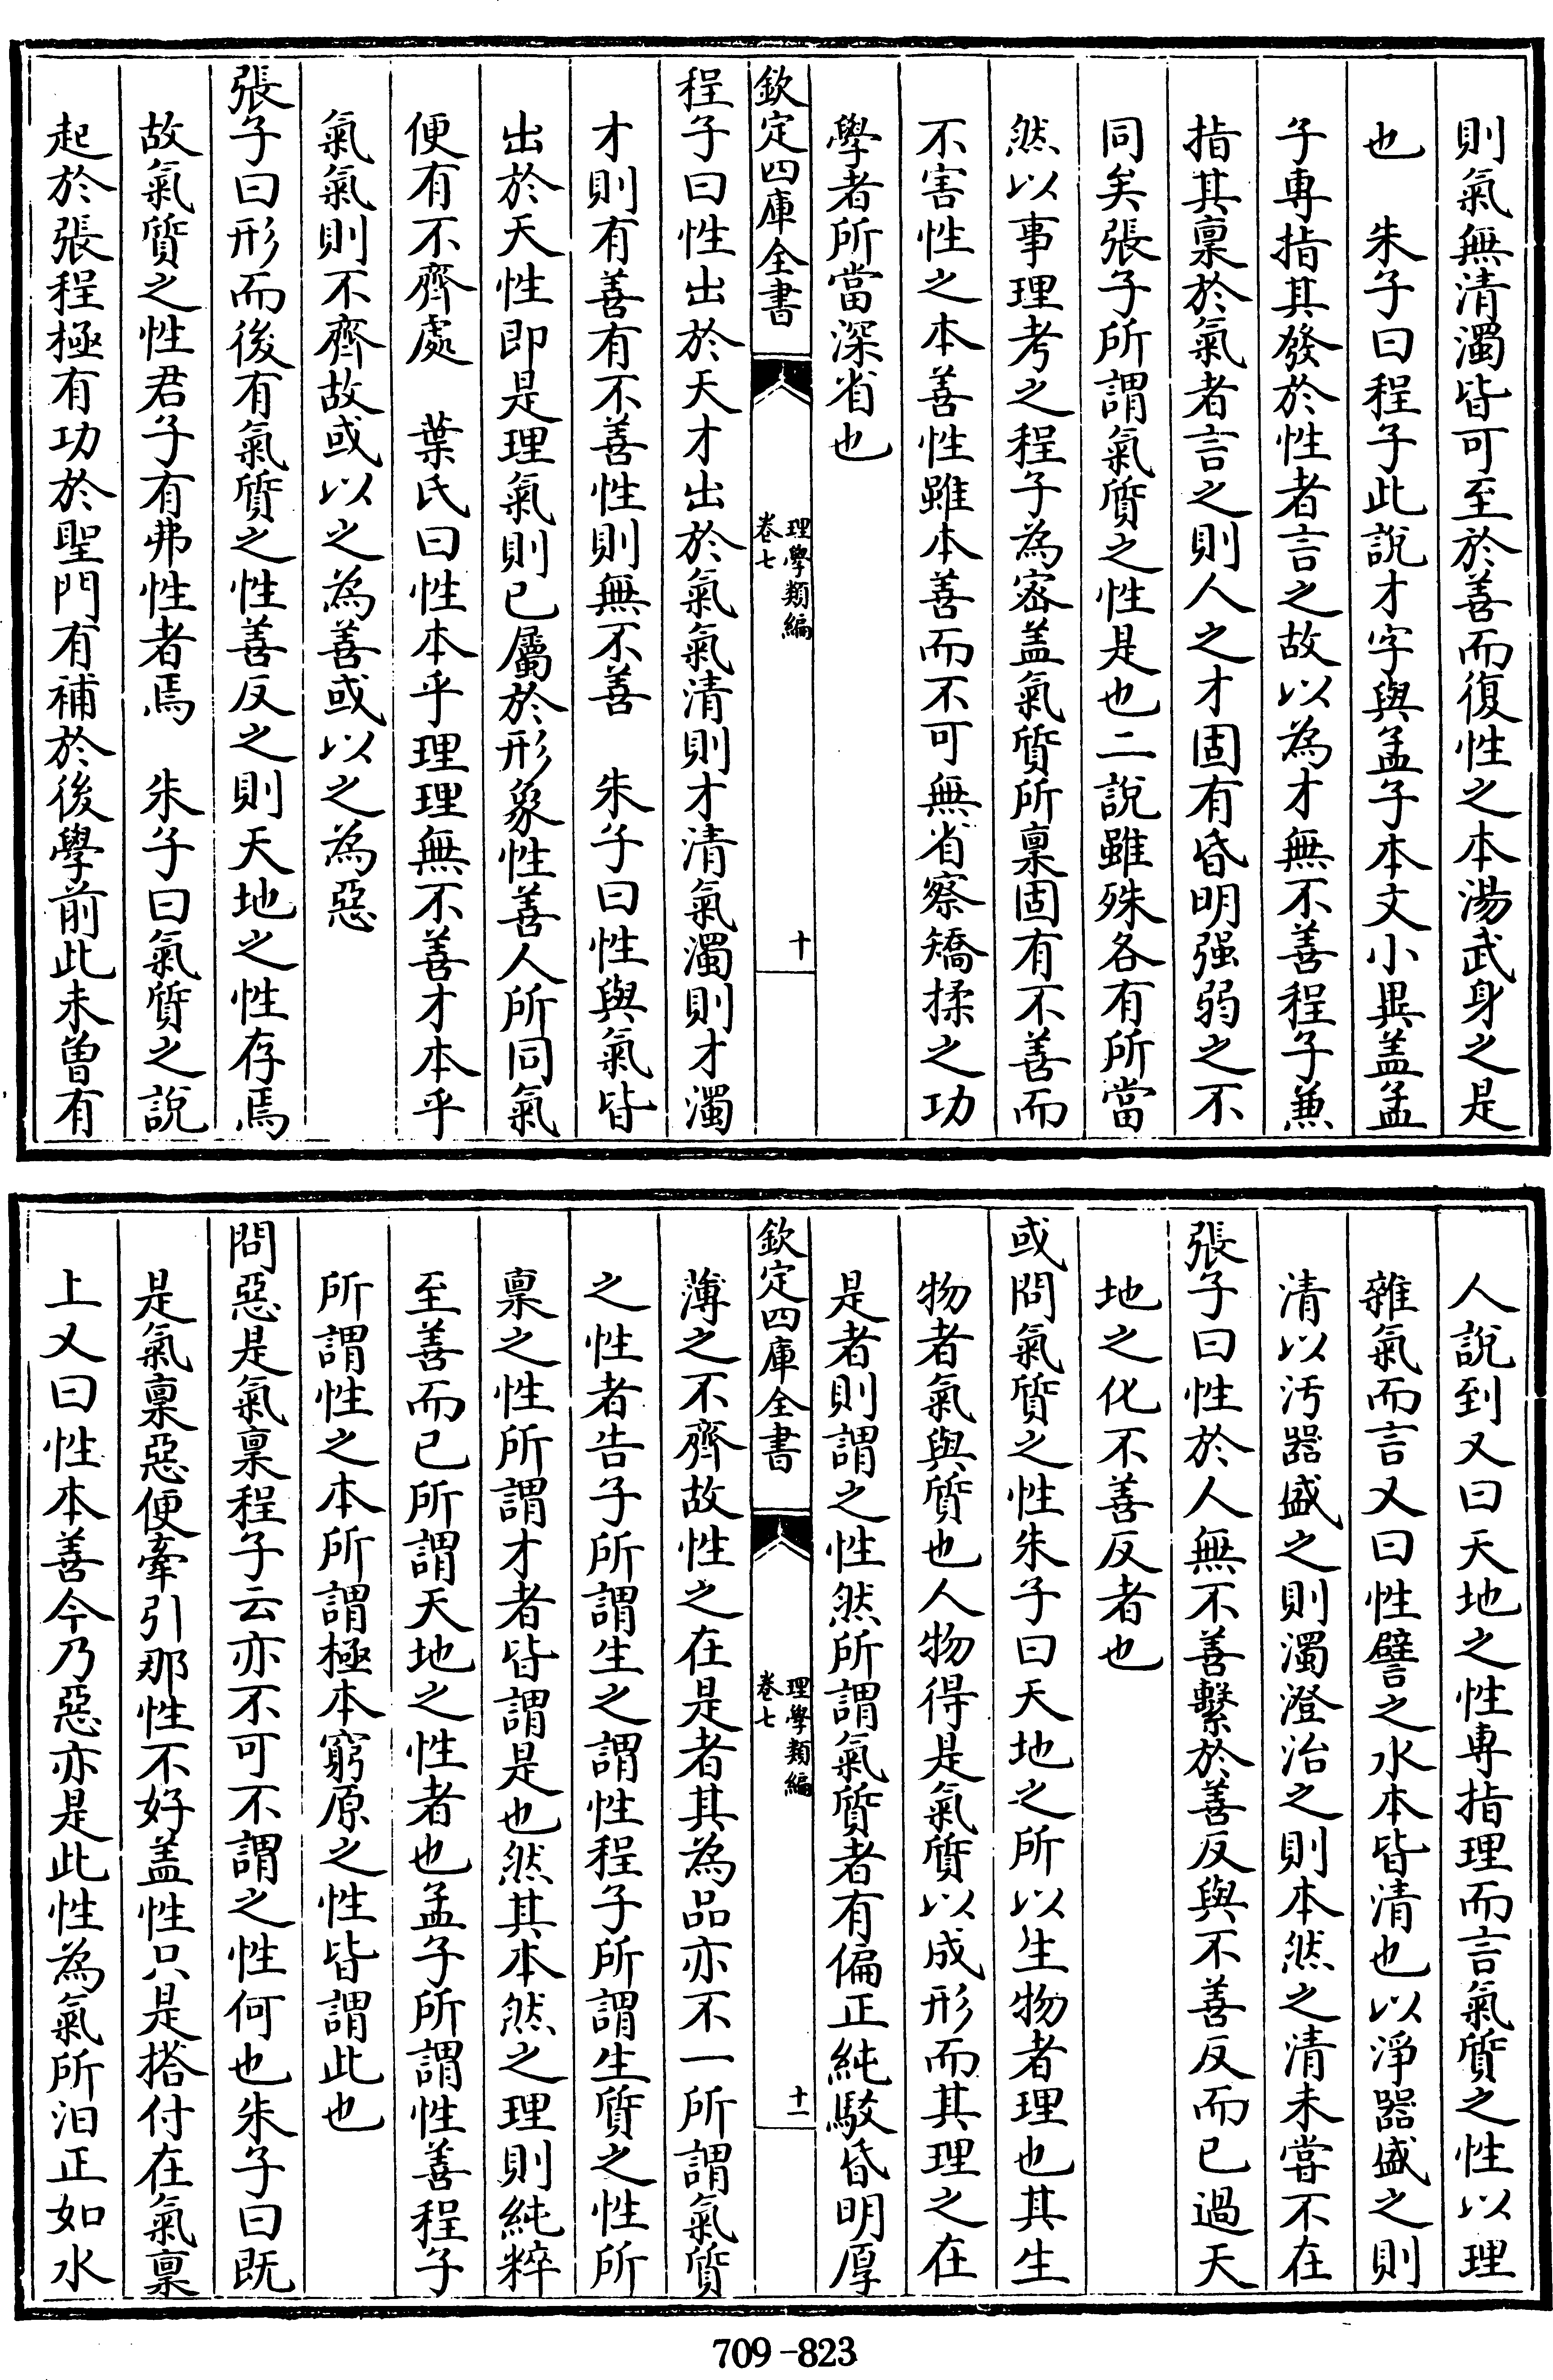 則氣無清濁皆可至於善而復性之本湯武身之是
也　朱子曰程子此說才字與孟子本文小異盖孟
子專指其發於性者言之故以為才無不善程子兼
指其稟於氣者言之則人之才固有昏明强弱之不
同矣張子所謂氣質之性是也二說雖殊各有所當
然以事理考之程子為宻盖氣質所稟固有不善而
不害性之本善性雖本善而不可無省察矯揉之功
學者所當深省也
欽定四庫全書
理學類編
卷七
十
程子曰性出於天才出於氣氣清則才清氣濁則才濁
才則有善有不善性則無不善　朱子曰性與氣皆
出於天性即是理氣則已屬於形象性善人所同氣
便有不齊處　葉氏曰性本乎理理無不善才本乎
氣氣則不齊故或以之為善或以之為惡
張子曰形而後有氣質之性善反之則天地之性存焉
故氣質之性君子有弗性者焉　朱子曰氣質之說
起於張程極有功於聖門有補於後學前此未曾有
人說到又曰天地之性專指理而言氣質之性以理
雜氣而言又曰性譬之水本皆清也以淨器盛之則
清以汚器盛之則濁澄治之則本然之清未嘗不在
張子曰性於人無不善繫於善反與不善反而已過天
地之化不善反者也
或問氣質之性朱子曰天地之所以生物者理也其生
物者氣與質也人物得是氣質以成形而其理之在
是者則謂之性然所謂氣質者有偏正純駁昏明厚
欽定四庫全書
理學類編
卷七
十一
薄之不齊故性之在是者其為品亦不一所謂氣質
之性者告子所謂生之謂性程子所謂生質之性所
稟之性所謂才者皆謂是也然其本然之理則純粹
至善而已所謂天地之性者也孟子所謂性善程子
所謂性之本所謂極本窮原之性皆謂此也
問惡是氣稟程子云亦不可不謂之性何也朱子曰既
是氣稟惡便牽引那性不好盖性只是搭付在氣稟
上又曰性本善今乃惡亦是此性為氣所汩正如水
709-823